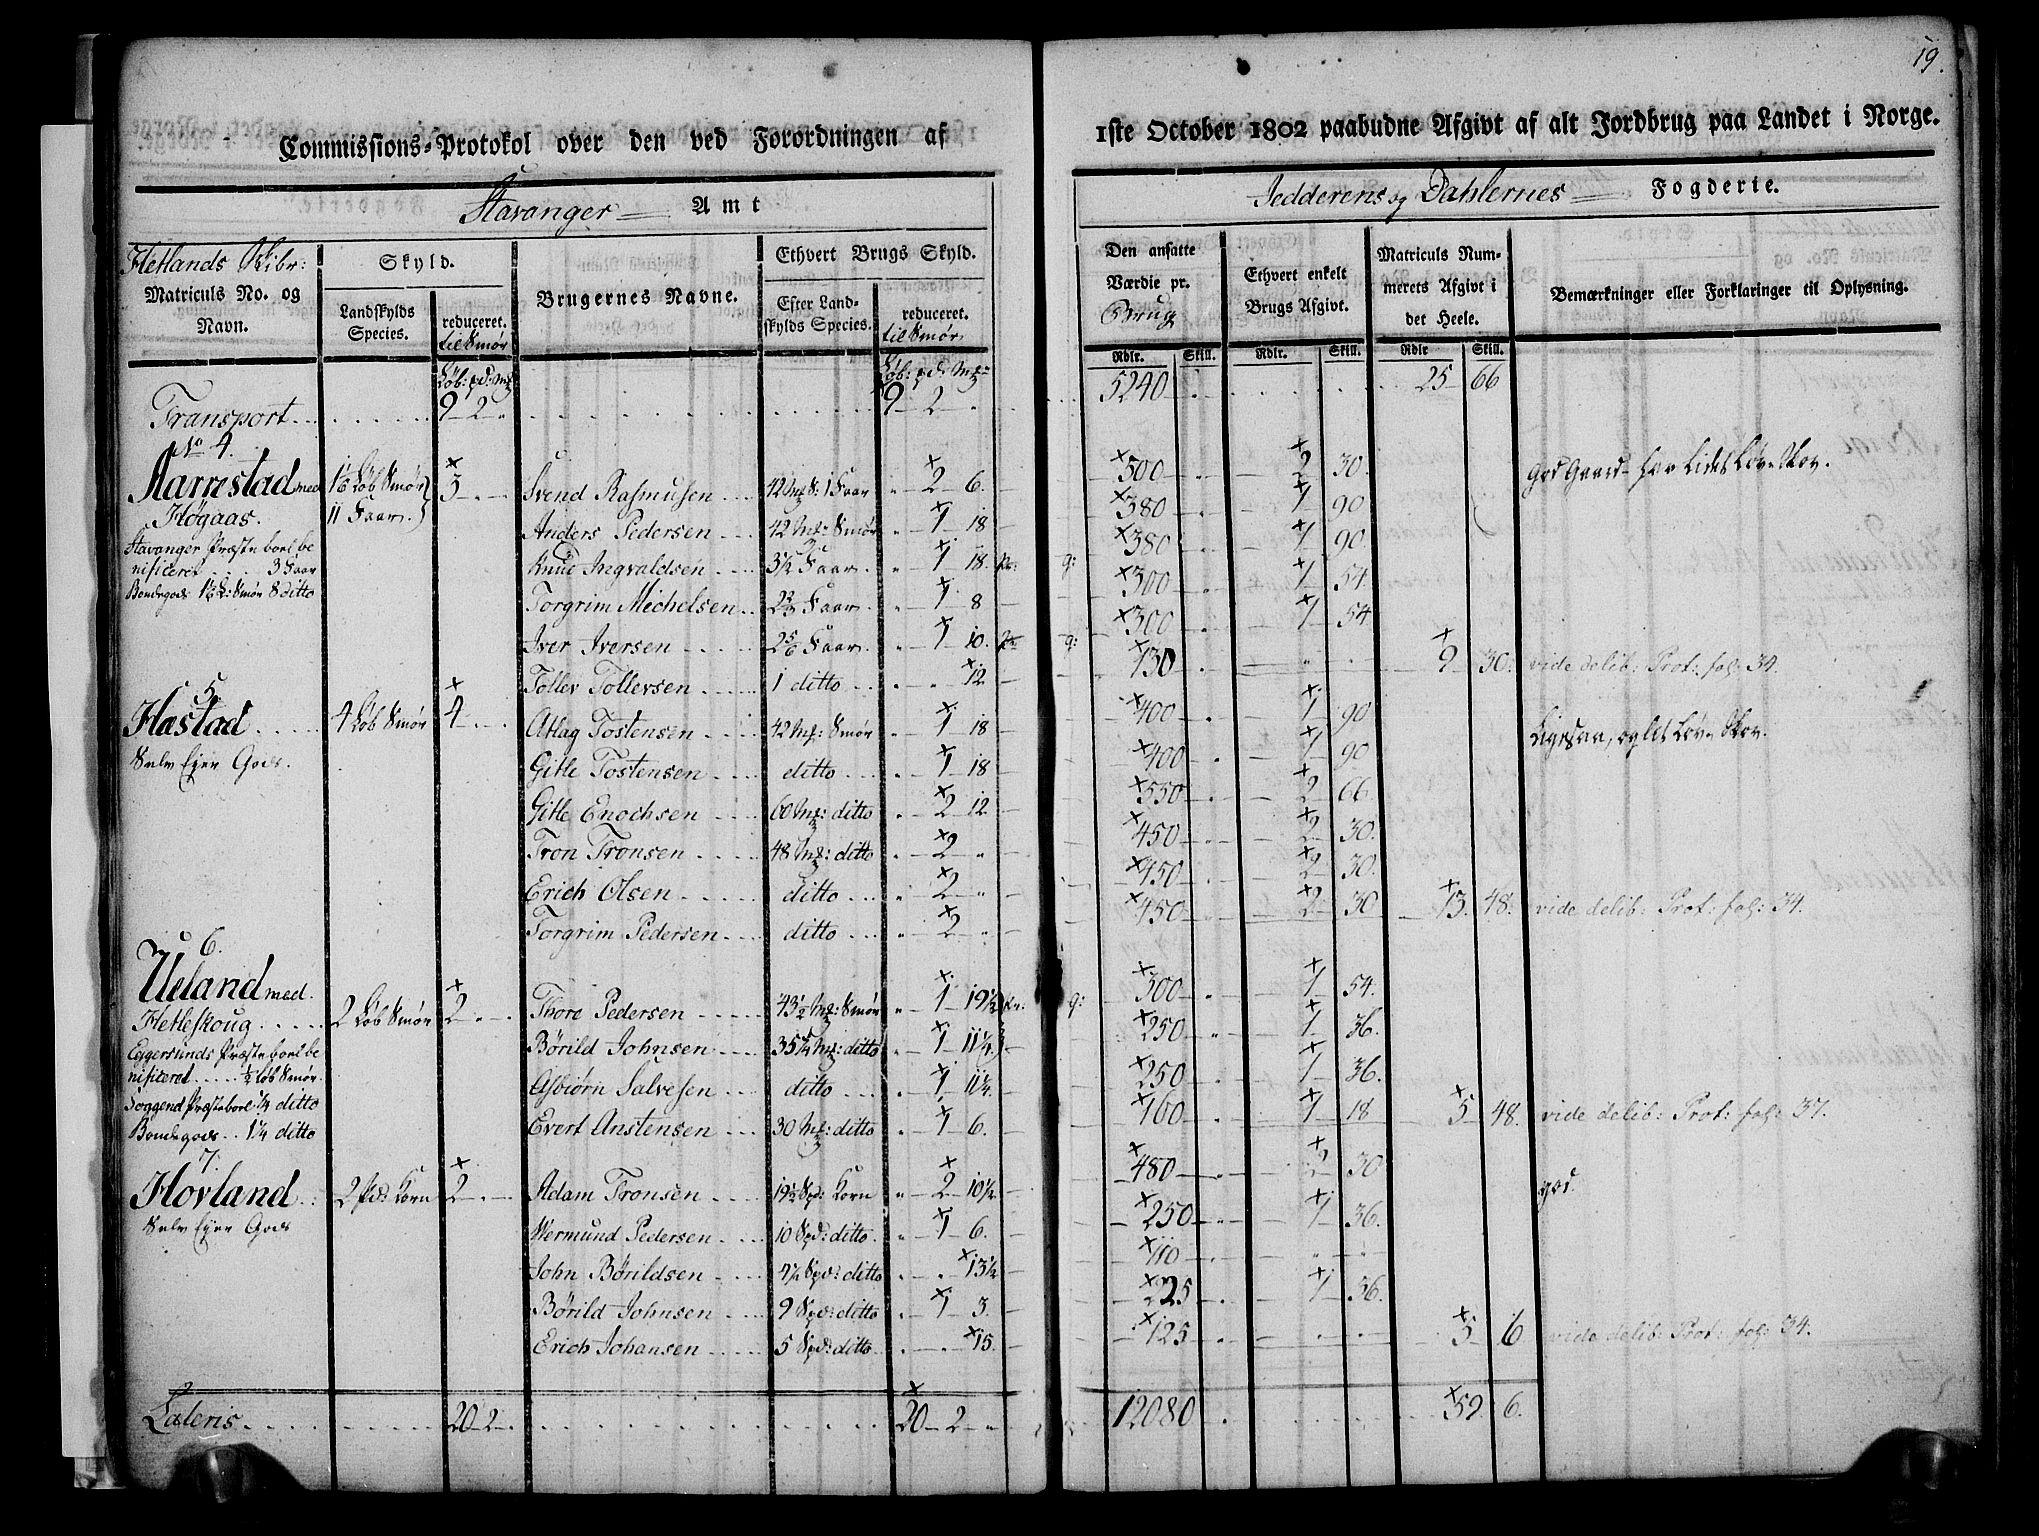 19.
Commissions-Protokol over den ved Forordningen af
1ste October 1802 paabudne Afgivt af alt Jordbrug paa Landet i Norge.
Stavanger Amt
Jedderens og Dahlernes Fogderie.
Hetlands Skibr:
Matriculs No. og Navn.
Skyld.
Landskylds Species.
reduceret. til Smør
Brugernes Navne.
Ethvert Brugs Skyld.
Efter Landskylds Species.
reduceret. til Smør
Den ansatte Værdie pr. Brug
Ethvert enkelt Brugs Afgivt.
Matriculs Nummerets Afgivt i det Heele.
Bemærkninger eller Forklaringer til Oplysning.
Rdlr. Skill. Rdlr. Skill. Rdlr Skill.
Løb: pd: Mk Løb: pd: Mk:
Transport 9 2 " 9 2 " 5240 25 66
No 4.
Aarrestad med 1 1/6 Løb Smør 3 Svend Rasmusen 42 Mk S: 1 Faar " 2 6. 500 2 30. god Gaard har Lidet Løv Skov.
Høgaas. 11 Faar. Anders Pedersen 42 Mk: Smør " 1 18 380 1 90
Stavanger Præstebord be
nificeret 3 Faar Knud Ingvaldsen 3 1/2 Faar " 1 18. 380 1 90.
Bondegods 1 1/6 L: Smør 8 ditto Torgrim Michelsen 2 2/3 Faar " 1 8 300 1 54
Iver Iversen 2 5/6 Faar " 1 10. 300 1 54
Toller Tollersen 1 ditto " " 12 130 9 30. vide delib: Prot: fol: 34.
5.
Hastad 4 Løb Smør 4 Atlag Tostensen 42 Mk: Smør 1 18 400 1 90 Ligesaa, og lidt Løv Skov.
Selv Ejer Gods. Gitle Tostensen ditto 1 18 400 1 90
Gitle Enochsen 60 Mk: ditto 2 12 550 2 66
Tron Tronsen 48 Mk: ditto 2 " 450 2 30.
Erich Olsen ditto 2 " 450 2 30.
Torgrim Pedersen ditto 2 " 450 2 30 13. 48. vide delib: Prot: fol: 34.
6.
Ueland med
Hetleskoug 2 Løb Smør 2 Thore Pedersen 43 1/2 Mk: Smør " 1 19 1/2 300 1 54.
Eggersunds Præstebord be Børild Johnsen 35 1/4 Mk: ditto " 1 11 1/4 250 1 36.
nificeret 1/2 Løb Smør. Asbiørn Salvesen ditto 1 11 1/4 250 1 36.
Soggend Præstebord 1/4 ditto Evert Anstensen 30 Mk: ditto 1 6. 160 1 18 5 48. vide delib: Prot: fol: 37.
Bondegods 1 1/4 ditto
7.
Hovland 2 pd: Korn 2 Adam Tronsen 19 1/2 Spd: Korn " 2 10 1/2 480 2 30 god.
Selv Ejer Gods Wermund Pedersen 10 Spd: ditto " 1 6. 250 1 36.
John Børildsen 4 1/2 Spd: ditto 13 1/2 110
Børild Johnsen 9 Spd: ditto 1 3. 225 1 36.
Erich Johansen 5 Spd: ditto 15. 125 5 6 vide delib: Prot: fol: 34.
Lateris 20 2 20 2 " 12080 59 6.